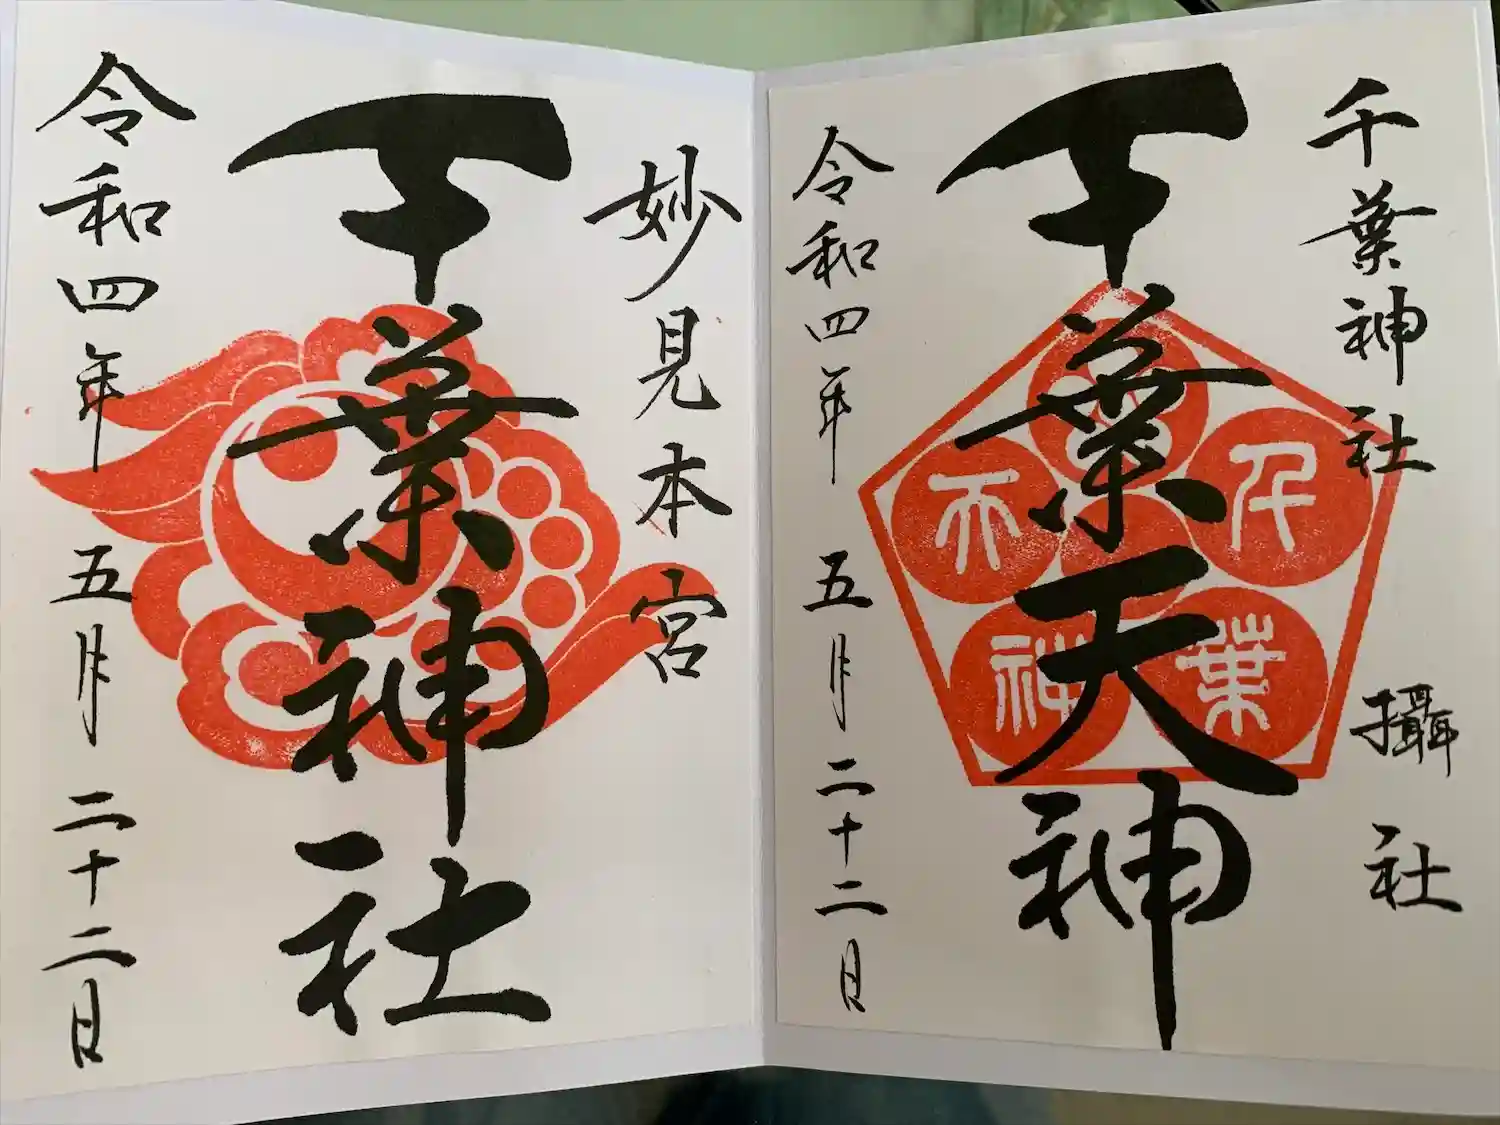 千葉神社
攝社
千葉天神
令和四年 五月二十二日
千
葉
神
天
妙見本宮
千葉神社
令和四年 五月二十二日